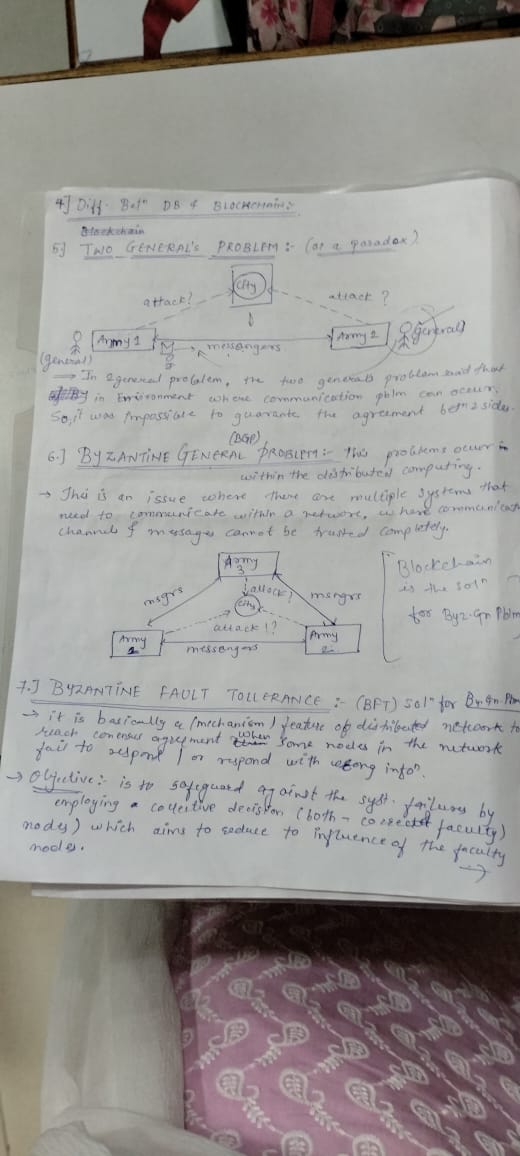 4] Diff. Betn DB & BLOCKCHAIN:-
Blockchain
5] TWO GENERAL'S PROBLEM :- (or a paradox)
City
attack?
attack ?
Army 1
Army 2
(General)
(general)
messangers
→ In 2 general problem, the two generals problem said that
in Environment where communication pblm can occur.
So, it was impossible to guarante the agreement betn 2 sides.
(BGP)
6.] BYZANTINE GENERAL PROBLEM :- This problems occur in
within the distributed computing.
→ This is an issue where there are multiple systems that
need to communicate within a network, where communicat
channels & messages cannot be trusted completely.
Army 3
msgrs
attack?
msngrs
City
attack!?
Army
Army
messengers
Blockchain
is the soln
for Byz. Gn Pblm
7.] BYZANTINE FAULT TOLLERANCE :- (BFT) soln for By. Gn. Pbm
→ it is basically a (mechanism) feature of distributed network to
reach consensus agreement when some nodes in the network
fail to respond / or respond with wrong infon.
→ Objective :- is to safeguard against the syst. failures by
employing a collective decision (both - correct faculty)
nodes) which aims to reduce to influence of the faculty
nodes.
→